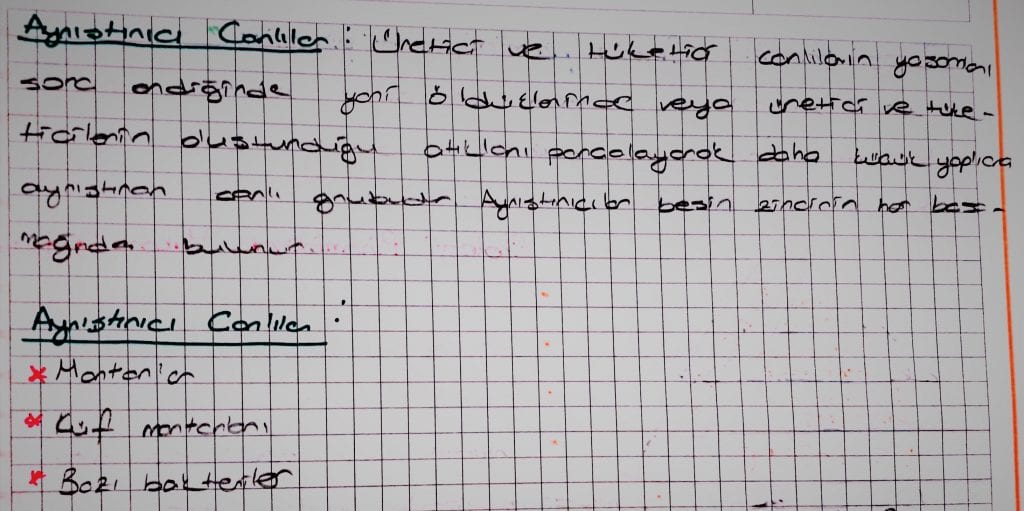 Ayrıştırıcı Canlılar : Üretici ve tüketici canlıların yaşamı
sona erdiğinde yani öldüklerinde veya üretici ve tüke-
ticilerin oluşturduğu atıkları parçalayarak daha küçük yapılara
ayrıştıran canlı grubudur Ayrıştırıcılar besin zincirinin her basa-
mağında bulunur.
Ayrıştırıcı Canlılar :
* Mantarlar
* Küf mantarları
* Bazı bakteriler